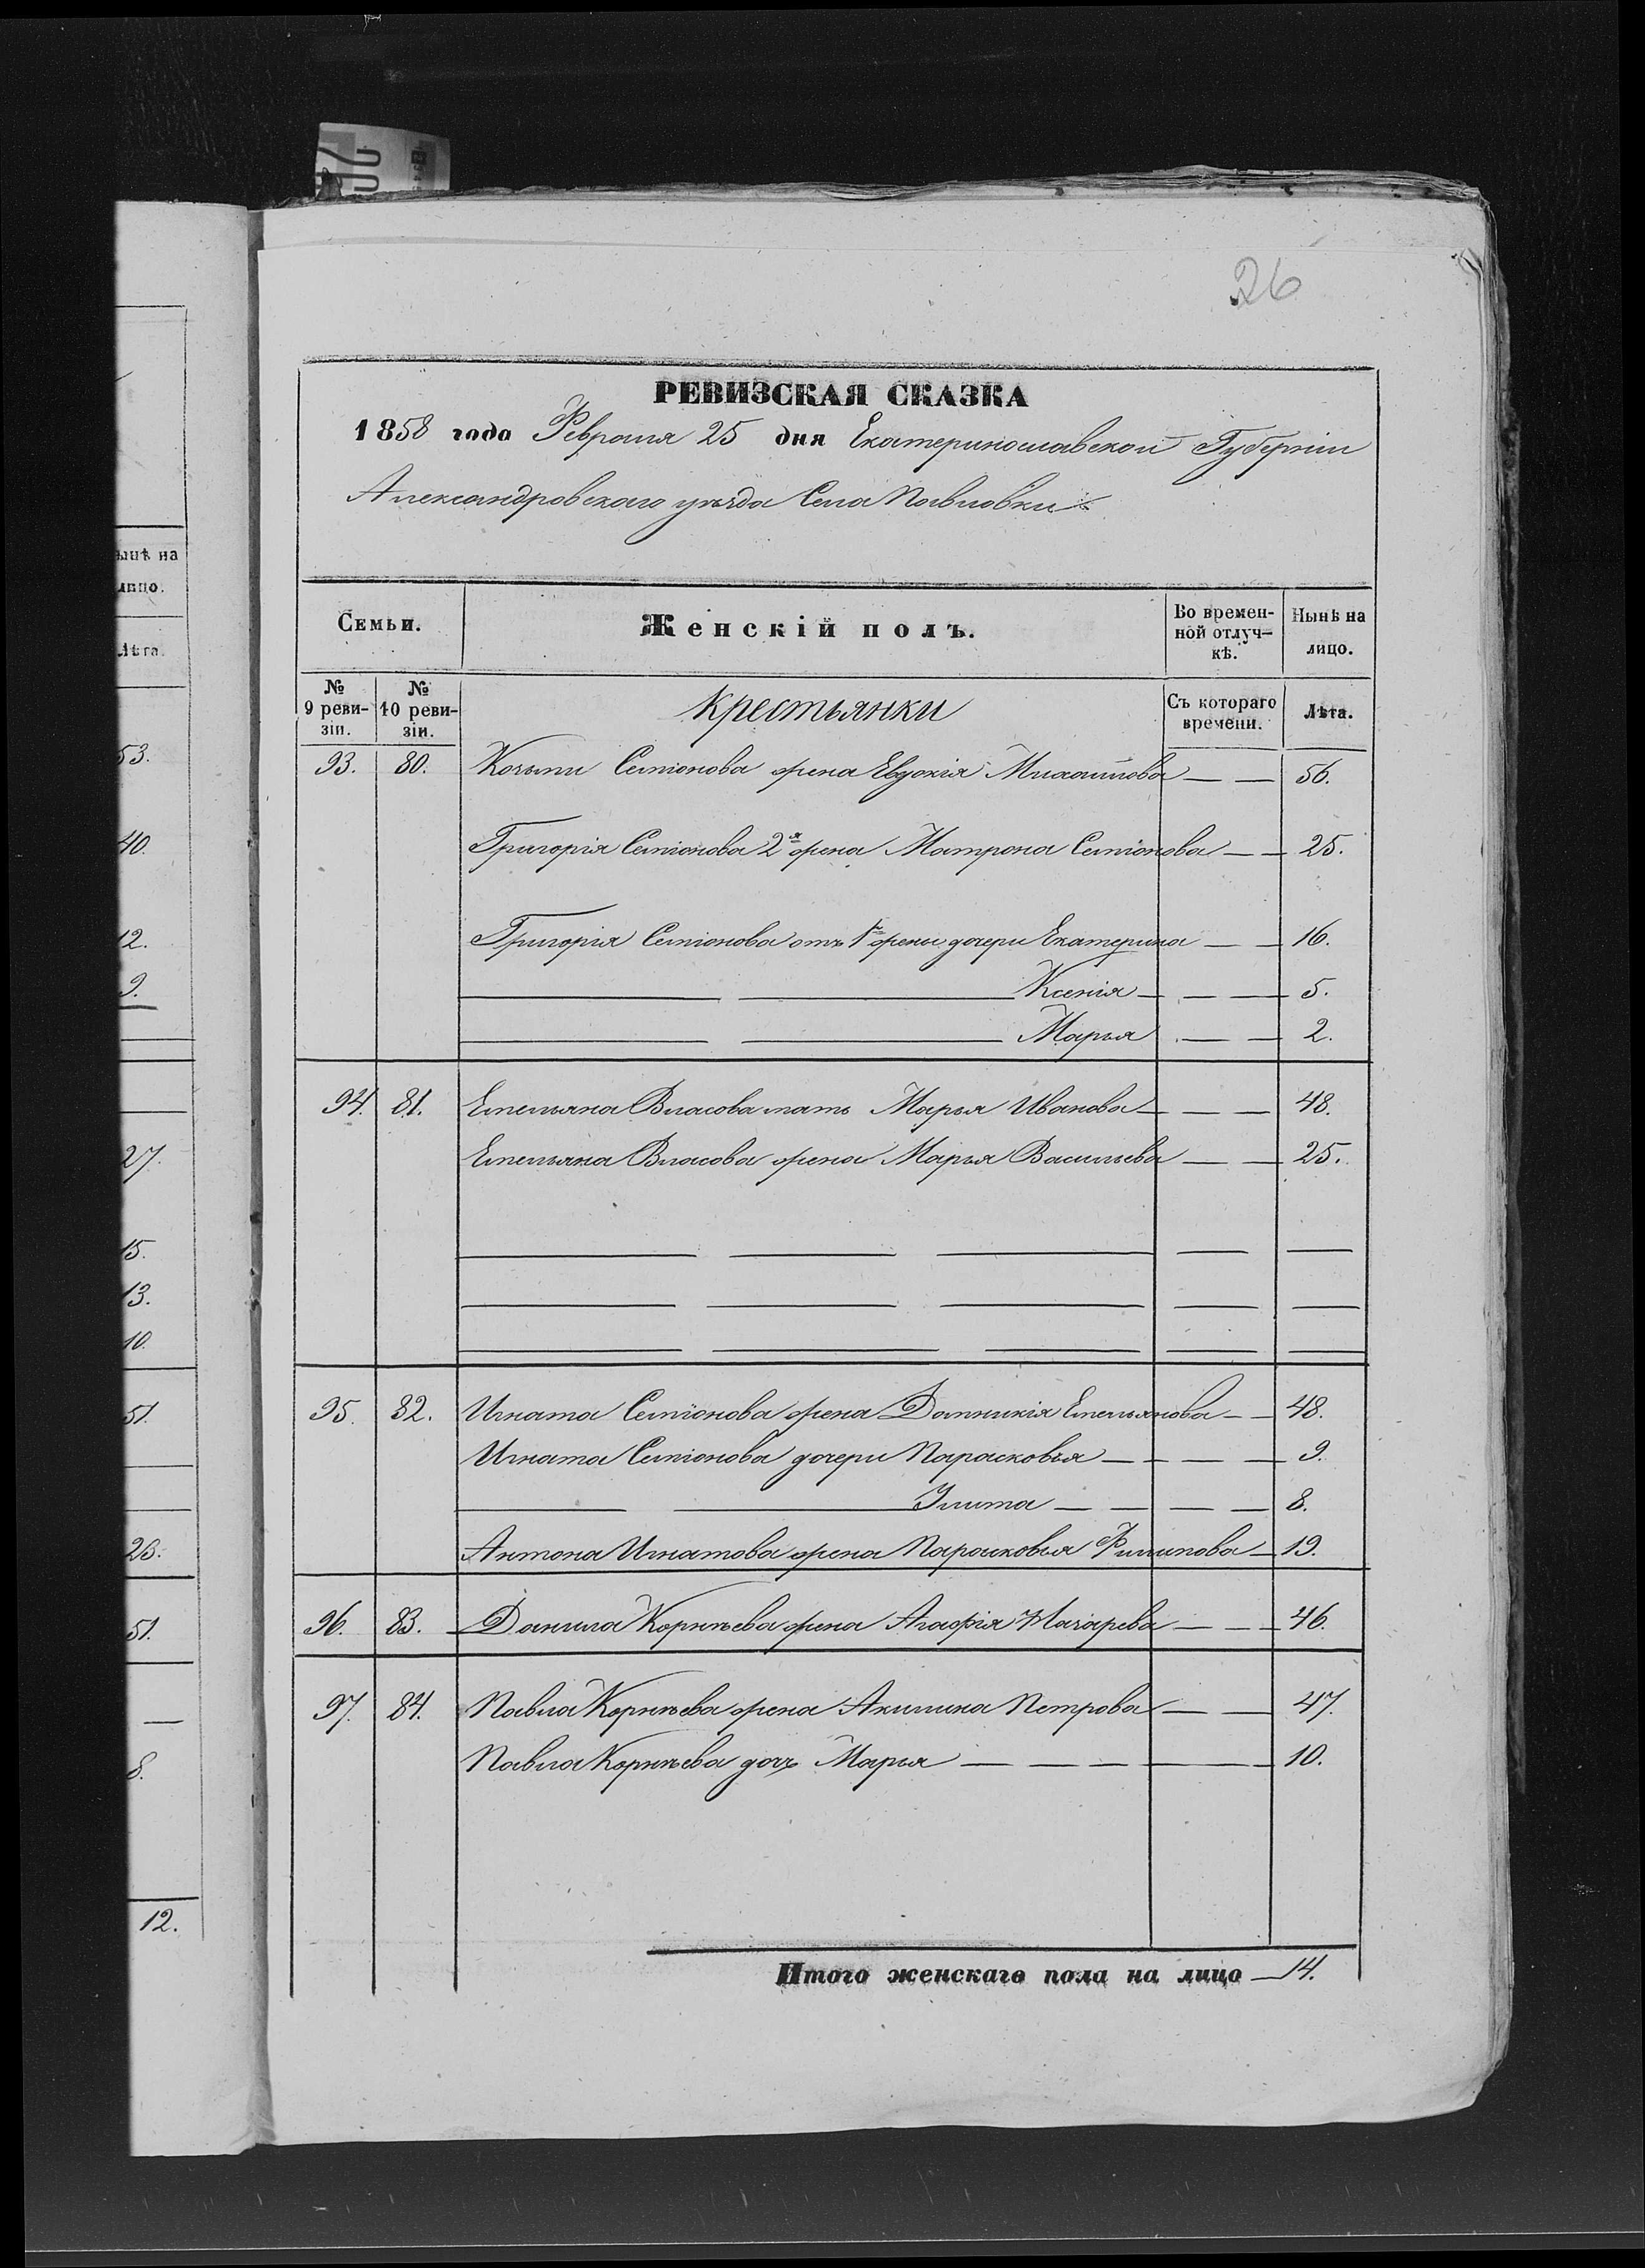 26
РЕВИЗСКАЯ СКАЗКА
1858 года Февраля 25 дня Екатеринославской Губерніи
Александровскаго уѣзда Села Павловки
Семьи.
Женскій полъ.
Во времен-
ной отлуч-
кѣ.
Нынѣ на
лицо.
№
9 реви-
зіи.
№
10 реви-
зіи.
крестьянки
Съ котораго
времени.
Лѣта.
93. 80. Козьмы Семіонова жена Евдокія Михайлова — — 56.
Григорія Семіонова 2я жена Матрона Семіонова — — 25.
Григорія Семіонова отъ 1й жены дочери Екатерина — — 16.
Ксенія — — — 5.
Марья — — 2.
94. 81. Емельяна Власова мать Марья Иванова — — — 48.
Емельяна Власова жена Марья Васильева — — 25.
95. 82. Игната Семіонова жена Домникія Емельянова — — 48.
Игната Семіонова дочери Парасковья — — — — 9.
Улита — — — — 8.
Антона Игнатова жена Парасковья Филипова — 19.
96. 83. Данила Корнѣева жена Агафія Назарева — — — 46.
97. 84. Павла Корнѣева жена Акилина Петрова — — 47.
Павла Корнѣева дочь Марья — — — — 10.
Итого женскаго пола на лицо — 14.
ынѣ на
лицо.
Лѣта.
53.
40.
12.
9.
27.
15.
13.
10.
51.
23.
51.
8.
12.